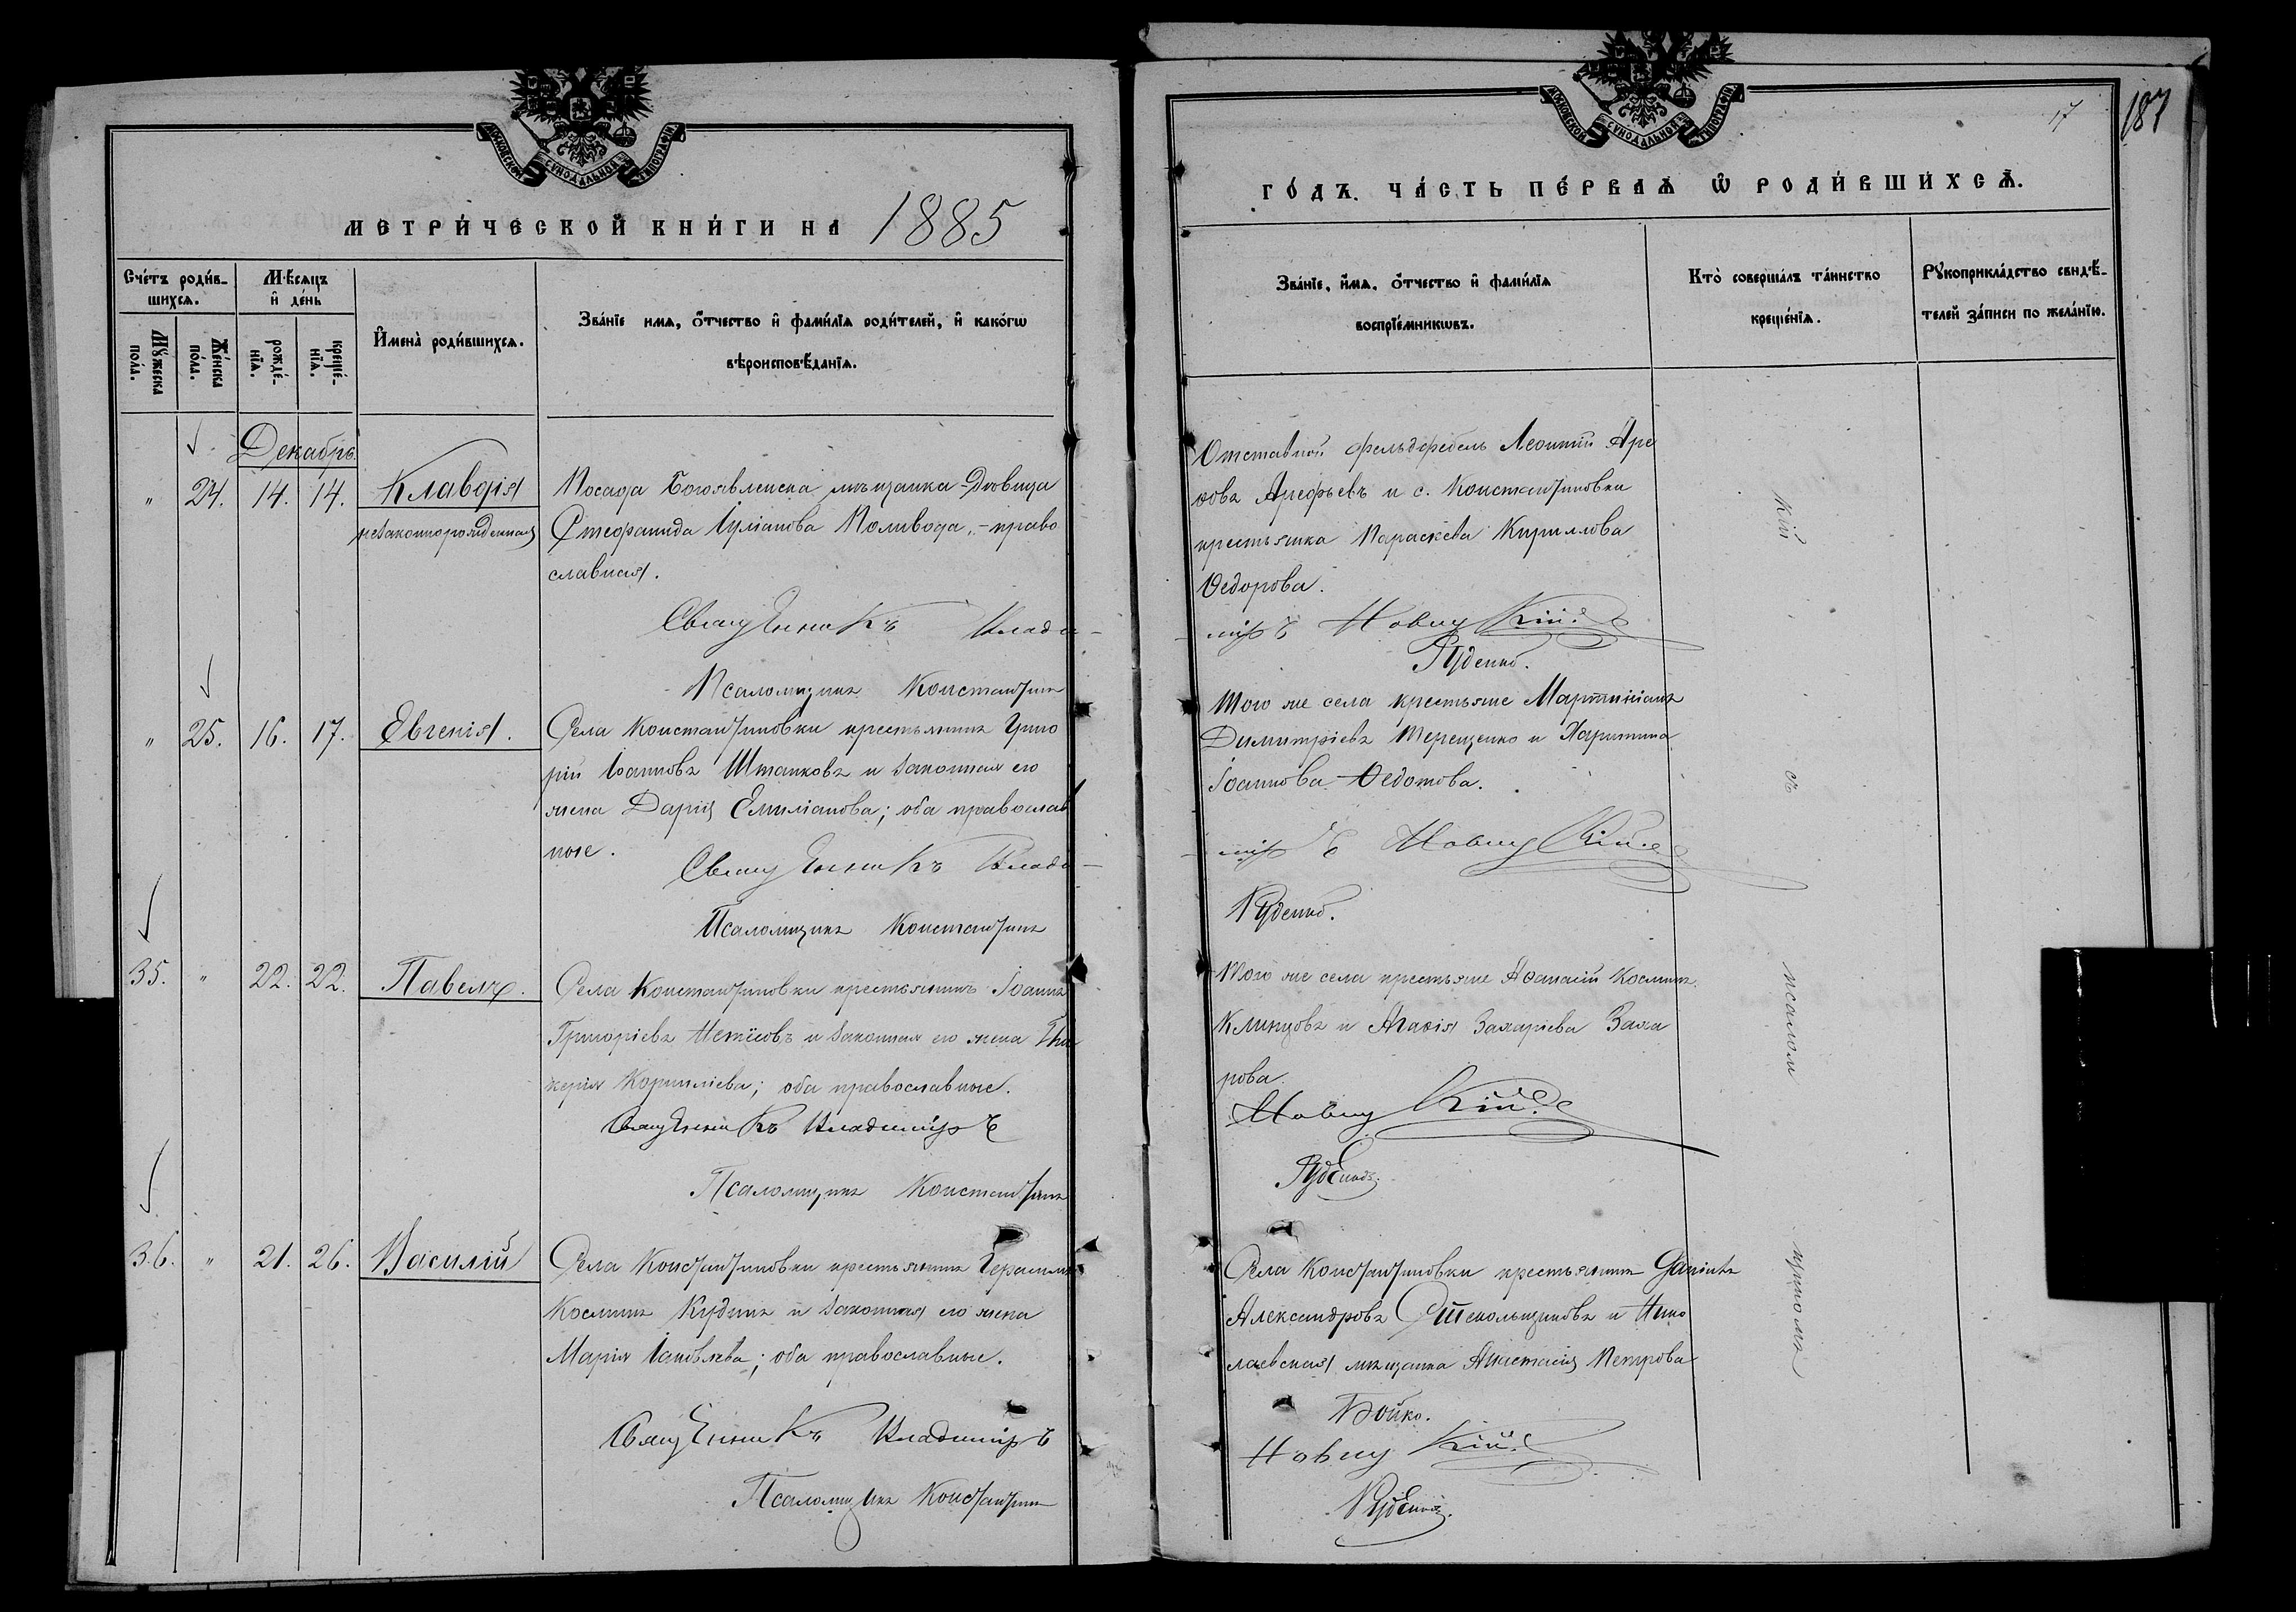 МОСКОВСКОЙ СУНОДАЛЬНОЙ ТИПОГРАФІИ
МЕТРИ́ЧЕСКОЙ КНИ́ГИ НА 1885
Сче́тъ роди́в-
шихсѧ.
Мѣ́сѧцъ
и҆ де́нь
Мꙋ́жеска по́ла.
Же́нска по́ла.
рожде́-нїѧ.
креще́-нїѧ.
И҆мена̀ роди́вшихсѧ.
Зва́нїе имѧ, ѻ҆́тчество и҆ фами́лїѧ роди́телей, и҆ како́гѡ
вѣроисповѣ́данїѧ.
Декабрь.
" 24. 14. 14. Клавдія
незаконнорожденная
Посада Богоявленска мѣщанка-дѣвица
Стефанида Іуліанова Поливода, - право
славная.
Священникъ Влади-
Псаломщикъ Константин
" 25. 16. 17. Евгенія.
Села Константиновки крестьянинъ Григо
рій Іоанновъ Штанковъ и законная его
жена Дарія Емиліанова; оба православ
ные.
Священникъ Влади-
Псаломщикъ Константинъ
35. " 22. 22. Павелъ.
Села Константиновки крестьянинъ Іоаннъ
Григоріевъ и законная его жена Гли
керія Корниліева; оба православные.
Священникъ Владиміръ
Псаломщикъ Константинъ
36. " 21. 26. Василій
Села Константиновки крестьянинъ Герасимъ
Косминъ Кудинъ и законная его жена
Марія Іаковлева; оба православные.
Священникъ Владиміръ
Псаломщикъ Константин
МОСКОВСКОЙ СУНОДАЛЬНОЙ ТИПОГРАФІИ
17
187
ГО́ДЪ. ЧА́СТЬ ПЕ́РВАѦ Ѡ҆ РОДИ́ВШИХСѦ.
Зва́нїе, и҆́мѧ, ѻ҆́тчество и҆ фами́лїѧ
воспрїе́мникѡвъ.
Кто̀ соверша́лъ та́инство
креще́нїѧ.
Рꙋкоприкла́дство свидѣ́-
телей за́писи по жела́нїю.
Отставной фельдфебель Леонтій Аре
ѳовъ Арефьевъ и с. Константиновки
крестьянка Параскева Кириллова
Ѳедорова.
міръ Новицкій.
Руденко.
Того же села крестьяне Мартиніанъ
Димитріевъ Терещенко и Харитина
Іоаннова Ѳедотова.
міръ Новицкій
Руденко.
Того же села крестьяне Аѳанасій Косминъ
Клинцовъ и Агаѳія Захаріева Заха
рова.
Новицкій
Руденко.
Села Константиновки крестьянинъ Даніилъ
Александровъ Стекольщиковъ и Нико
лаевская мѣщанка Анастасія Петрова
Бойко.
Новицкій
Руденко.
кій съ псалом щикомъ